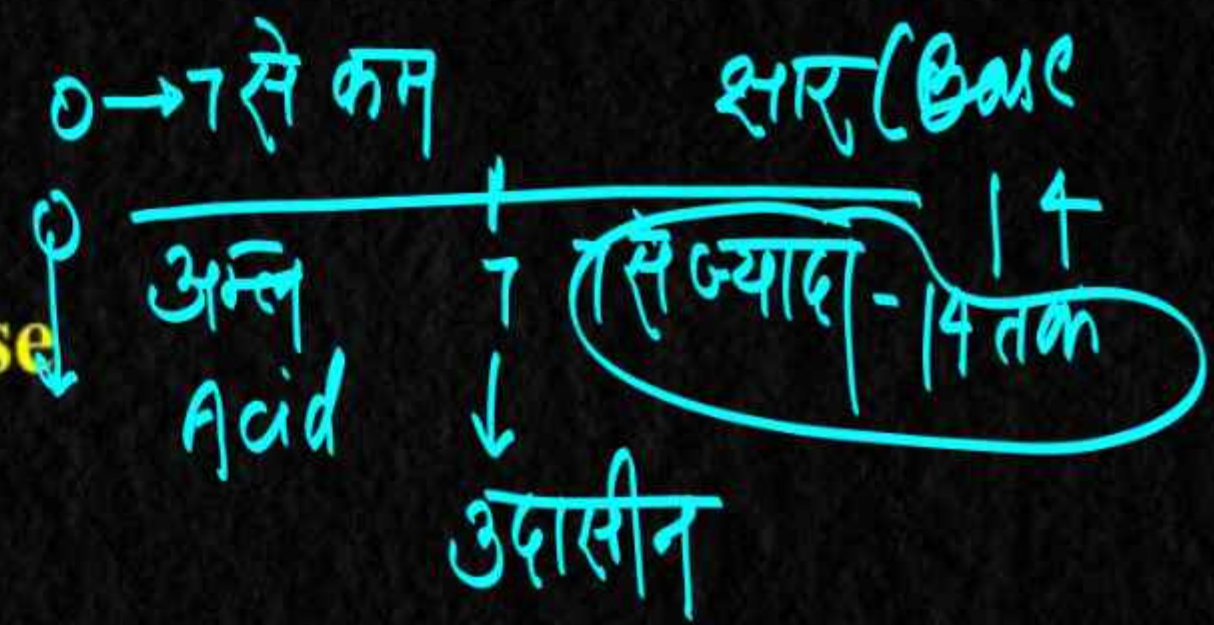 0→7 से कम क्षार (Base
0 14
अम्ल 7 7 से ज्यादा - 14 तक
se
Acid
उदासीन